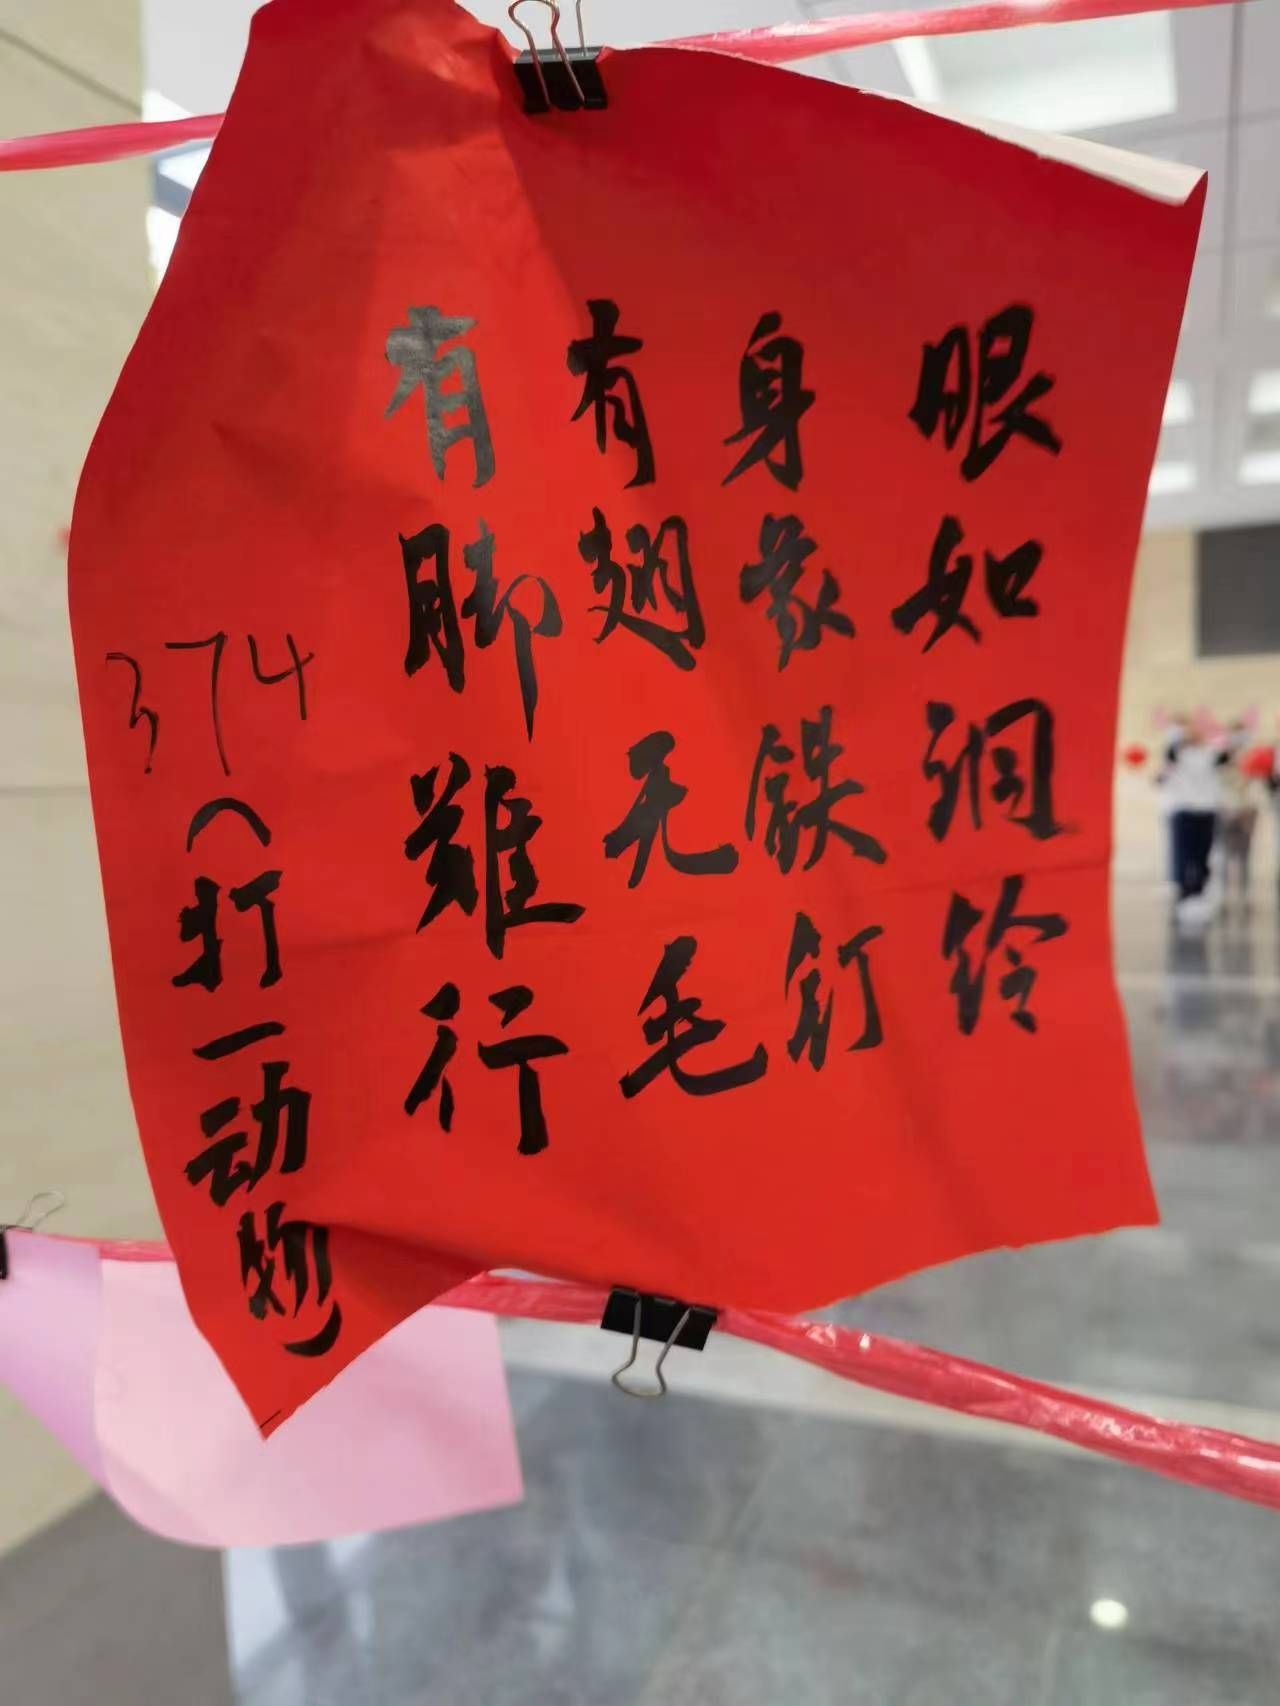 眼如洞铃
身象铁钉
有翅无毛
有脚难行
(打一动物)
374